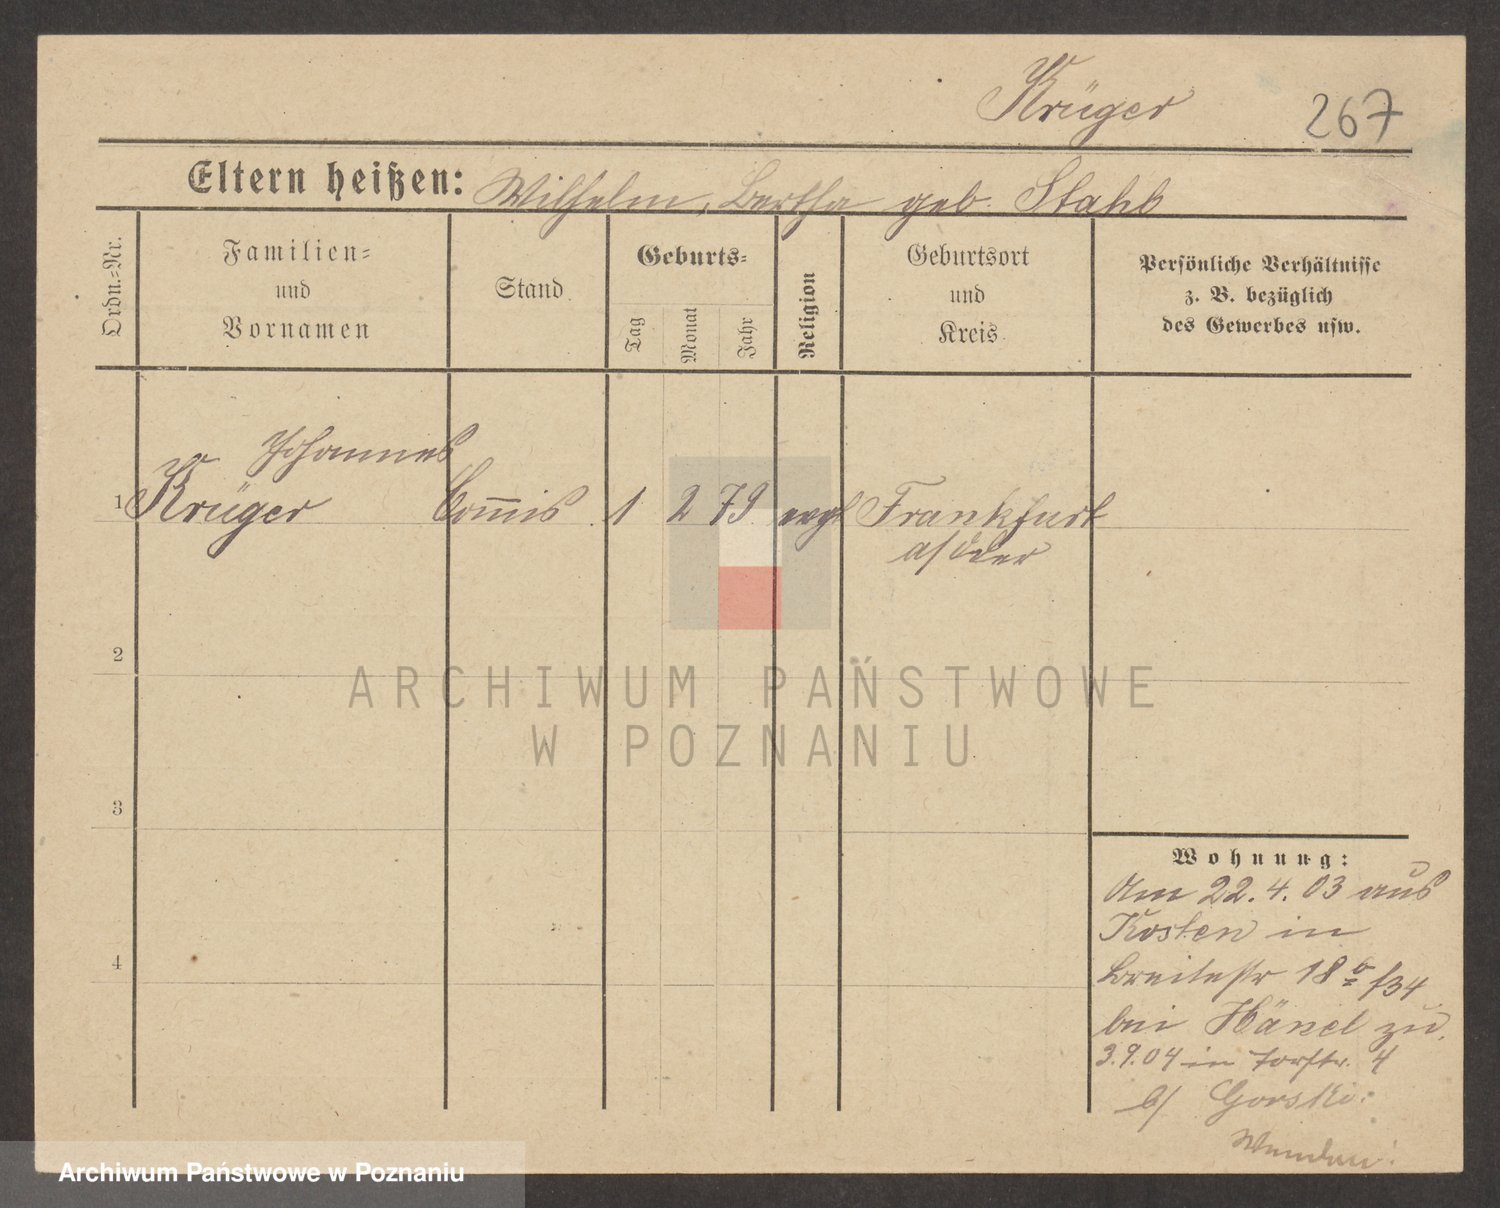 Krüger
267
Eltern heißen: Wilhelm, Bertha geb. Stahl
Ordn.=Nr.
Familien=
und
Vornamen
Stand
Geburts=
Tag
Monat
Jahr
Religion
Geburtsort
und
Kreis
Persönliche Verhältnisse
z. B. bezüglich
des Gewerbes usw.
Johannes
1 Krüger Com̅is 1 2 79 evgl Frankfurt
a/Oder
2
3
4
Wohnung:
Am 22.4.03 aus
Kosten in
Breitestr 18
bei Hänel zu.
3.9.04 in Torstr. 4
b/ Gorski.
ARCHIWUM PAŃSTWOWE
W POZNANIU
Archiwum Państwowe w Poznaniu